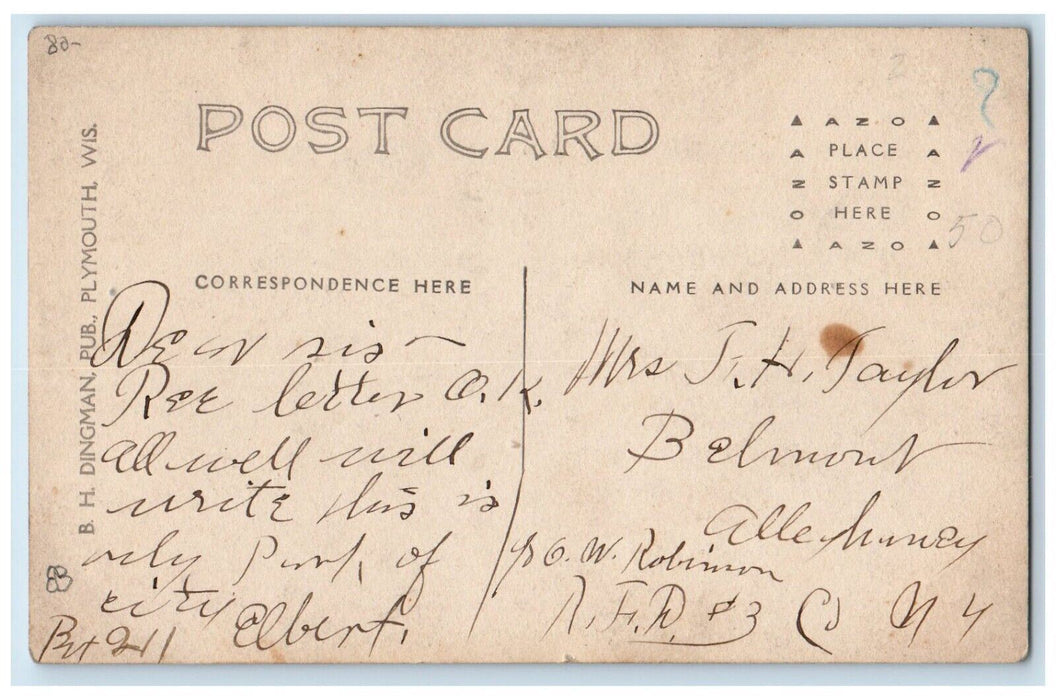 80-
POST CARD
▲ A Z O ▲
A PLACE A
Z STAMP Z
O HERE O
▲ A Z O ▲
50
B. H. DINGMAN, PUB., PLYMOUTH, WIS.
CORRESPONDENCE HERE
NAME AND ADDRESS HERE
Dear sis -
Rec letter O.K.
all well will
write this is
only Part of
city Elbert.
Mrs T. H. Taylor
Belmont
Alleghaney
% O. W. Robinson
R.F.D. #3 Co N Y